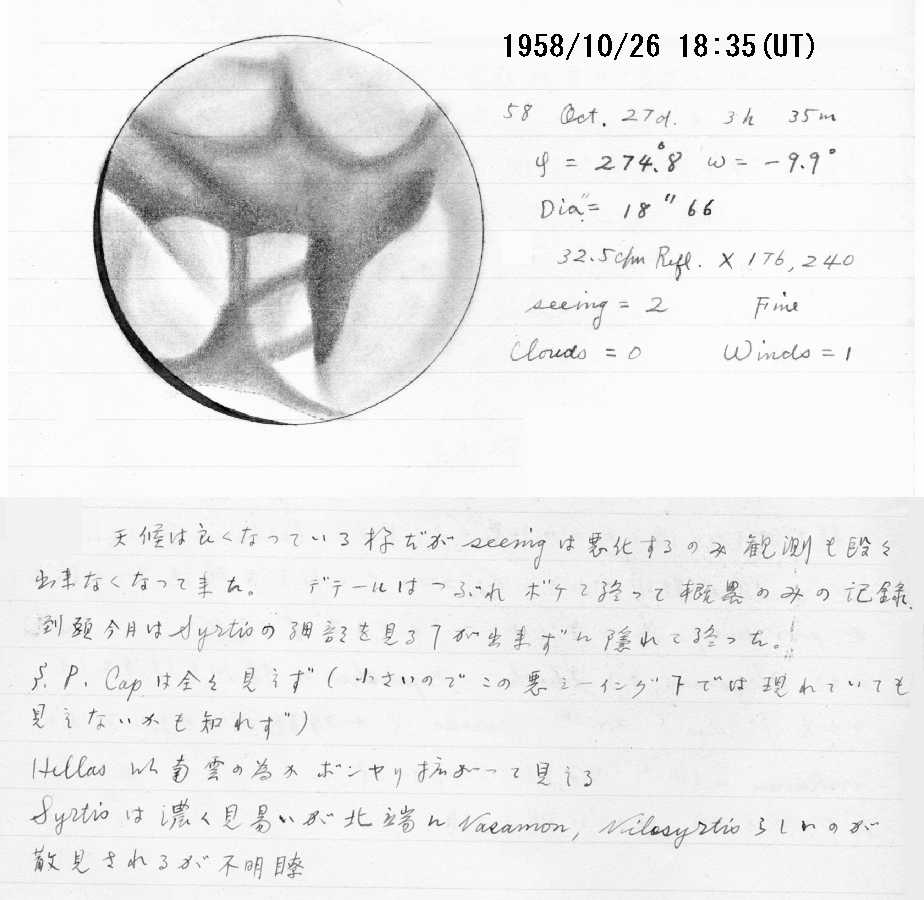 1958/10/26 18:35(UT)
58 Oct. 27d. 3h 35m
φ = 274.°8 ω = -9.9°
Dia = 18"66
32.5cm Refl. × 176, 240
seeing = 2 Fine
Clouds = 0 Winds = 1
天候は良くなっている様だが seeing は悪化するのみ観測も段々
出来なくなって来た。 デテールはつぶれボケて終って概略のみの記録。
到頭今月は Syrtis の細部を見る事が出来ずに隠れて終った。
S. P. Cap は全々見えず(小さいのでこの悪シーイング下では現れていても
見えないかも知れず)
Hellas 南雲の為かボンヤリ拡がって見える
Syrtis は濃く見易いが北端に Nasamon, Nilosyrtis らしいのが
散見されるが不明瞭